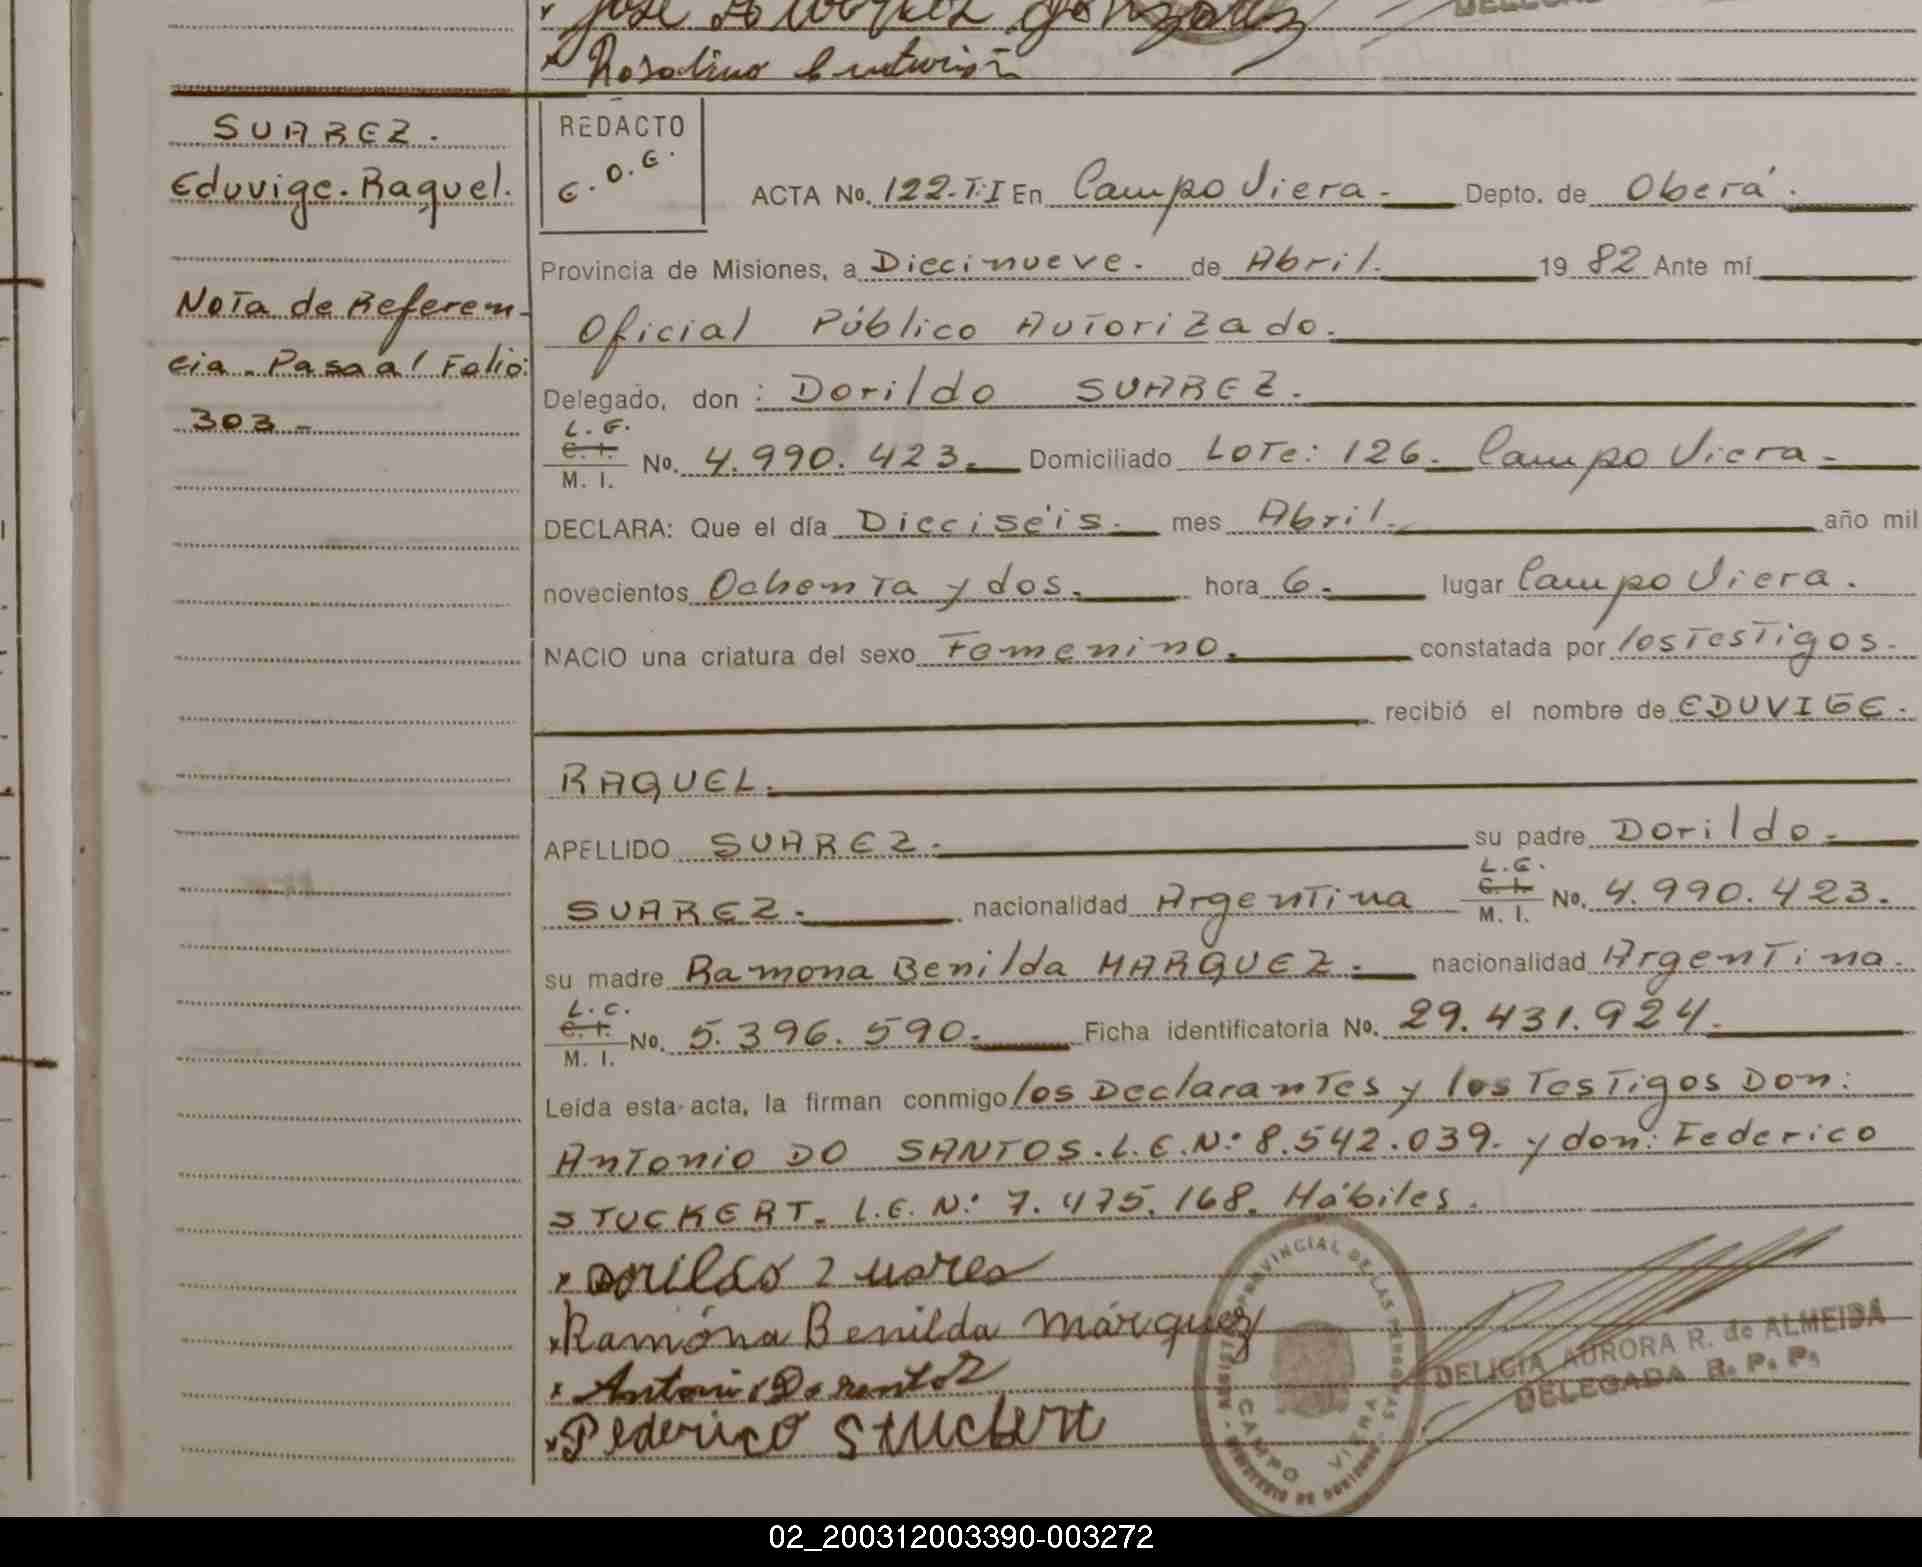 José
Rosalino Centurión
SUAREZ.
Eduvige. Raquel.
Nota de Referen-
cia. Pasa al Folio:
303-
REDACTO
E.O.E.
ACTA No. 122-T.I En Campo Viera.- Depto. de Oberá.
Provincia de Misiones, a Diecinueve. de Abril. 19 82 Ante mí
Oficial Público Autorizado.
Delegado, don : Dorildo SUAREZ.
L.E. C.I. M.I. No. 4.990.423. Domiciliado Lote: 126. Campo Viera.
DECLARA: Que el día Dieciséis. mes Abril. año mil
novecientos Ochenta y dos. hora 6. lugar Campo Viera.
NACIO una criatura del sexo Femenino. constatada por los Testigos.
recibió el nombre de EDUVIGE.
RAQUEL.
APELLIDO SUAREZ. su padre Dorildo.
SUAREZ. nacionalidad Argentina L.E. C.I. M.I. No. 4.990.423.
su madre Ramona Benilda MARQUEZ. nacionalidad Argentina.
L.C. C.I. M.I. No. 5.396.590. Ficha identificatoria No. 29.431.924.
Leída esta acta, la firman conmigo los Declarantes y los Testigos Don:
Antonio DO SANTOS. L.E.N: 8.542.039. y don: Federico
STUCKERT. L.E. N: 7.475.168. Hábiles.
Dorildo Suares
Ramóna Benilda Márquez
Antonio
Federico Stuckert
PROVINCIAL DE LAS PERSONAS
CAMPO VIERA
DELICIA AURORA R. de ALMEIDA
DELEGADA R. P. P.
02_200312003390-003272